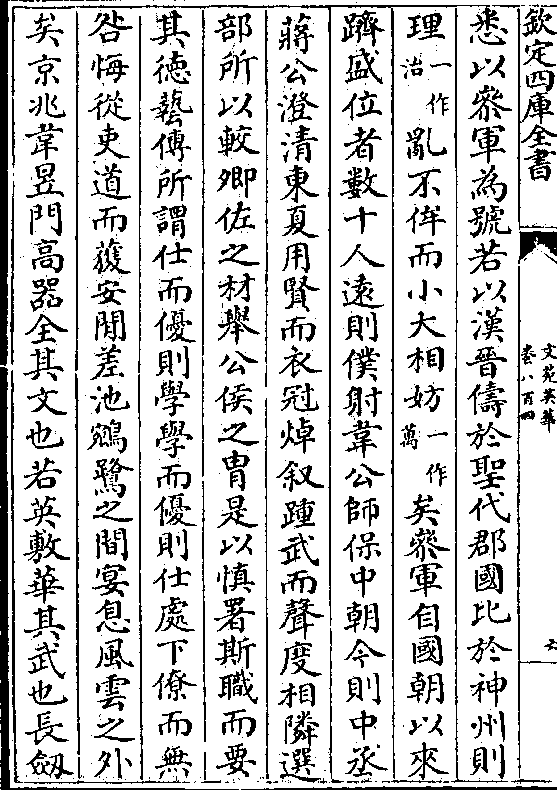 欽定四庫全書
文苑英華
卷八百四
六
悉以叅軍為號若以漢晉儔於聖代郡國比於神州則
理一作治亂不侔而小大相妨一作萬矣叅軍自國朝以來
躋盛位者數十人遠則僕射韋公師保中朝今則中丞
蔣公澄清東夏用賢而衣冠焯叙踵武而聲度相隣選
部所以較卿佐之材舉公侯之胄是以慎署斯職而要
其德藝傅所謂仕而優則學學而優則仕處下僚而無
咎悔從吏道而獲安閒差池鵷鷺之間宴息風雲之外
矣京兆韋昱門高器全其文也若英敷華其武也長劔